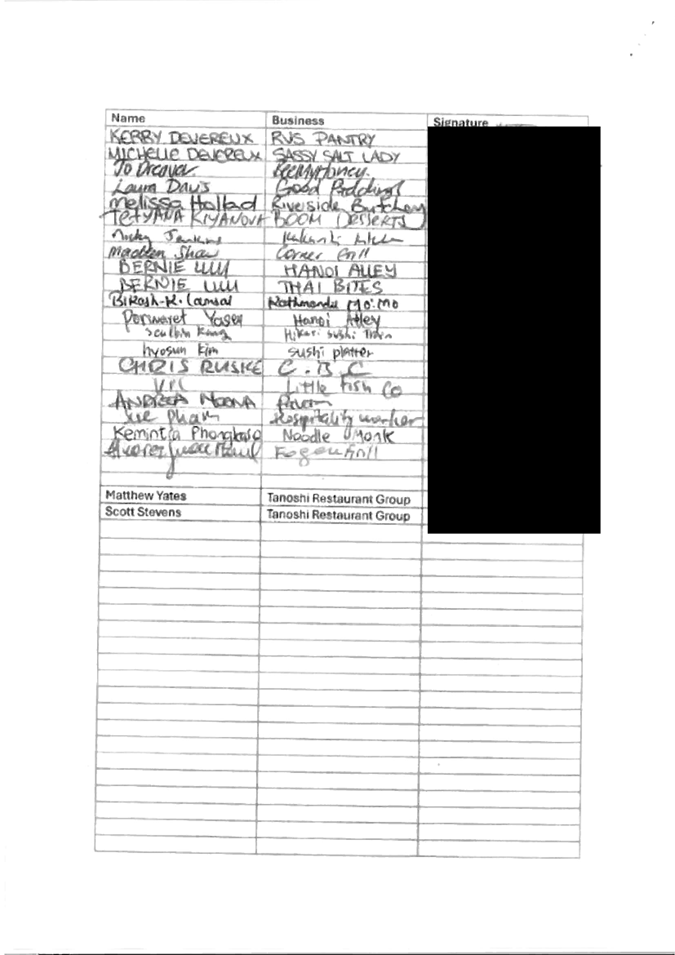 Name Business Signature
KERRY DEVEREUX RVS PANTRY
MICHELLE DEVEREUX SASSY SALT LADY
Jo Dreaver BeeMyHoney.
Laura Davis Good Puddings
Melissa Holland Riverside Butchery
TETYANA KIYANOVA BOOM Desserts
Nicky Jenkins
Madten Shaw Corner Grill
BERNIE LUU HANOI ALLEY
BERNIE LUU THAI BITES
Bikash.K.Lamsal Kathmandu MO:MO
Hanoi Alley
Kang Hikari Sushi Train
hyosun Kim sushi platter
CHRIS RUSKE C.B.C
Little Fish Co
ANDREA
Pham Hospitality worker
Kemintia Noodle Monk
Alvarez
Matthew Yates Tanoshi Restaurant Group
Scott Stevens Tanoshi Restaurant Group